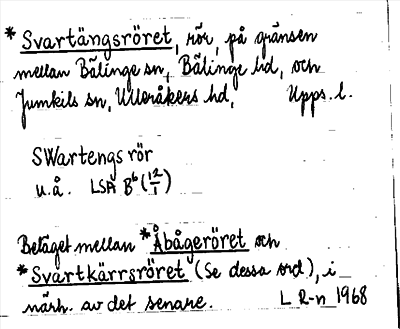 *Svartängsröret, rör, på gränsen
mellan Bälinge sn, Bälinge hd, och
Jumkils sn, Ulleråkers hd, Upps. l.
SWartengs rör
u.å. LSA B⁶ (12/1)
Beläget mellan *Åbågeröret och
*Svartkärrsröret (Se dessa ord), i
närh. av det senare. L R-n 1968